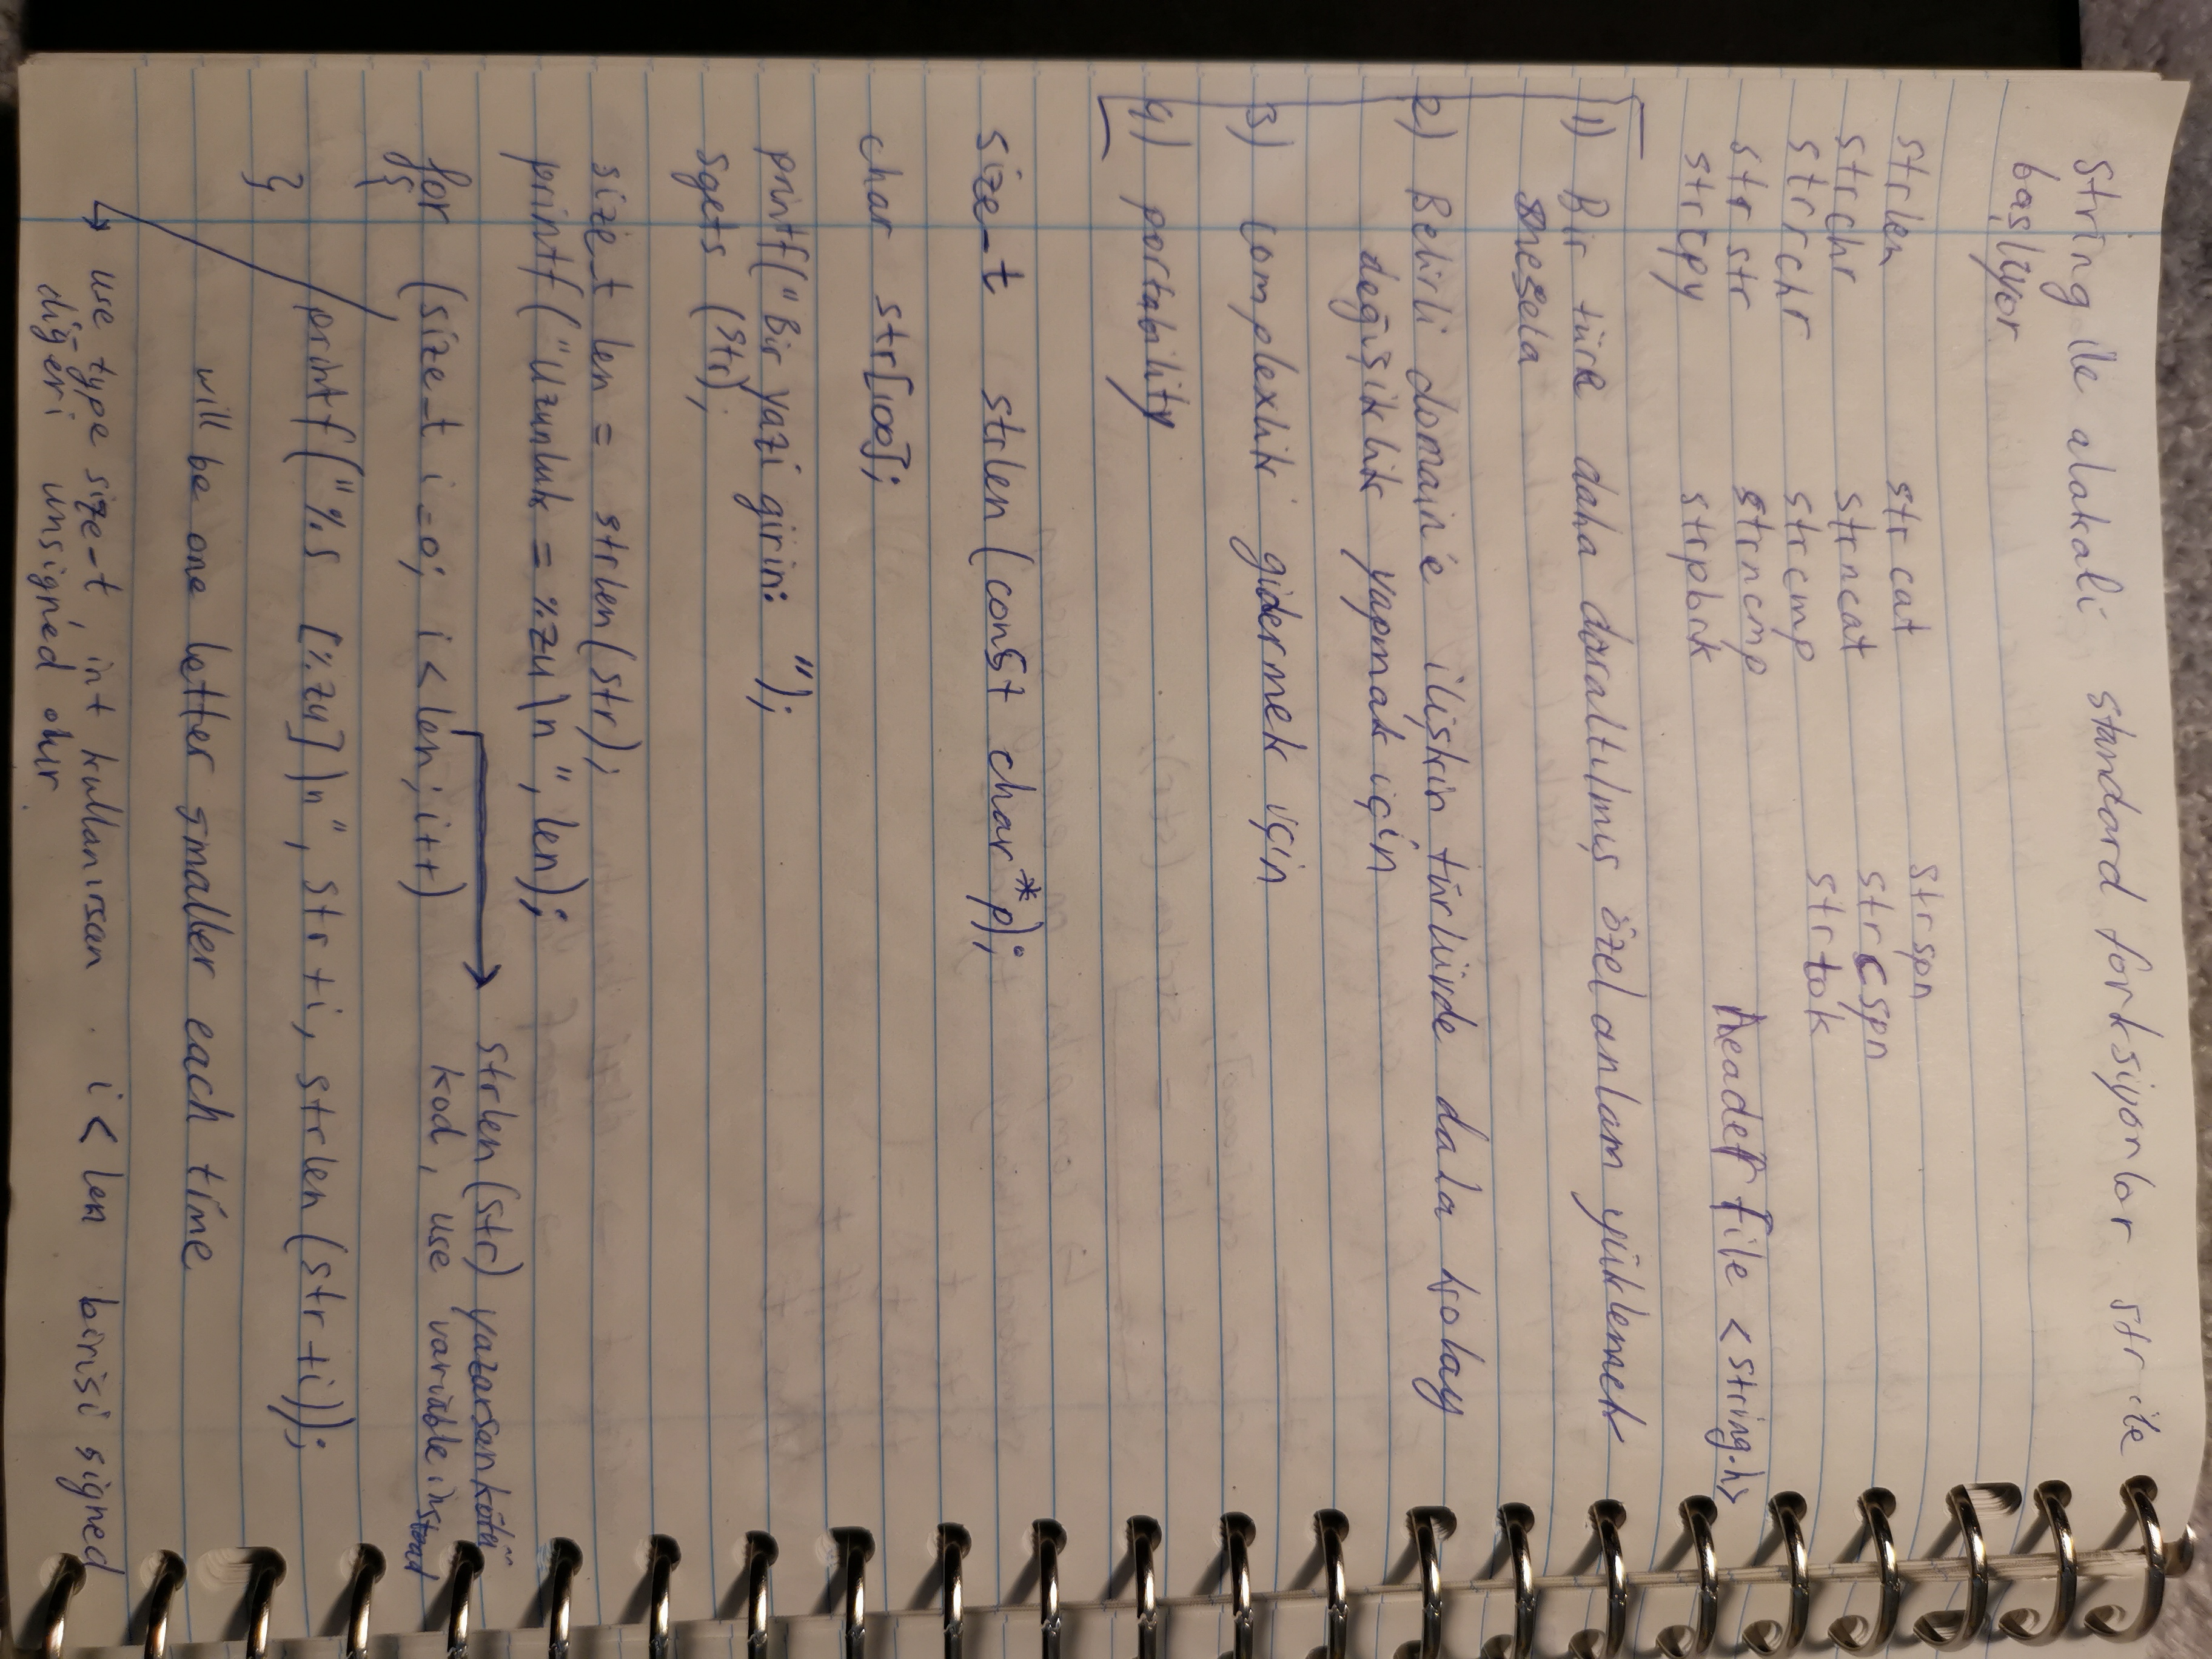 string ile alakali standard fonksiyonlar str ile
başlıyor
strlen strcat strspn
strchr strncat strcspn
strrchr strcmp strtok
strstr strncmp header file <string.h>
strcpy strpbrk
1) Bir türe daha daraltılmış özel anlam yüklemek
mesela
2) Belirli domain'e ilişkin türlürde daha kolay
değişiklik yapmak için
3) complexlik gidermek için
4) portability
size_t strlen (const char *p);
char str[100];
printf("Bir yazi girin: ");
sgets (str);
size_t len = strlen(str);
printf("Uzunluk = %zu\n", len);
strlen(str) yazarsan kötü
for (size_t i=0; i<len; i++) kod, use variable instead
{
printf("%s [%zu]\n", str+i, strlen(str+i));
}
will be one letter smaller each time
use type size_t, int kullanırsan i < len birisi signed
diğeri unsigned olur